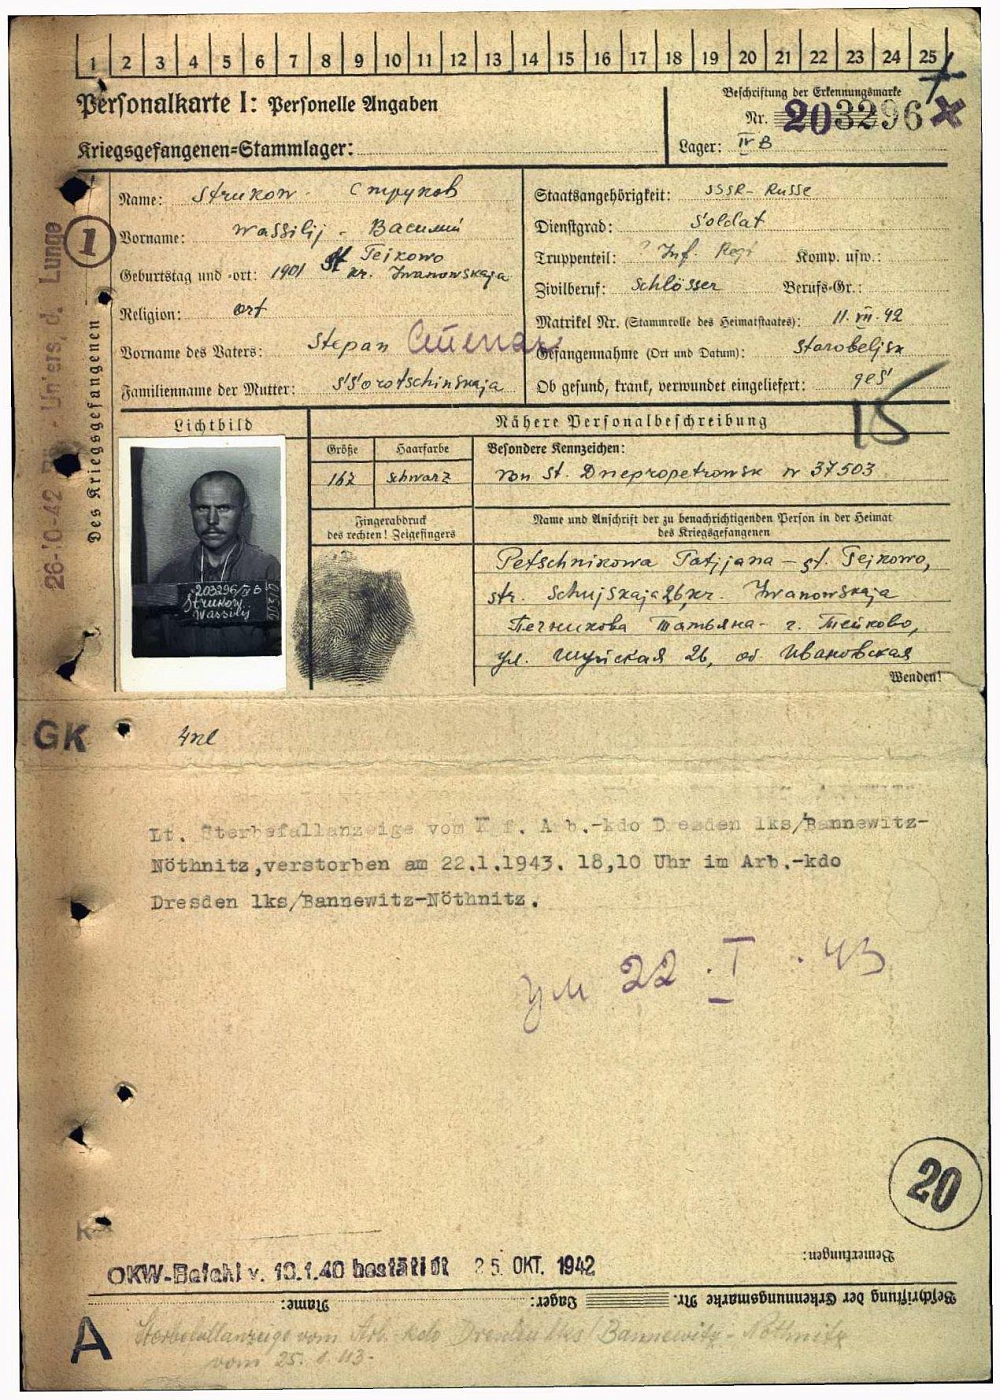 1 2 3 4 5 6 7 8 9 10 11 12 13 14 15 16 17 18 19 20 21 22 23 24 25
Personalkarte I: Personelle Angaben
Beschriftung der Erkennungsmarke
Nr. 203296
Kriegsgefangenen-Stammlager:
Lager: IV B
Name: Strukow - Струков
Vorname: Wassilij - Василий
Geburtstag und -ort: 1901 St Tejkowo
kr. Iwanowskaja
Religion: ort
Vorname des Vaters: Stepan Степан
Familienname der Mutter:
Staatsangehörigkeit: SSSR - Russe
Dienstgrad: Soldat
Truppenteil: Inf. Regi Komp. usw.:
Zivilberuf: Schlösser Berufs-Gr.:
Matrikel Nr. (Stammrolle des Heimatstaates): 11. VII. 42
Gefangennahme (Ort und Datum): Starobeljsk
Ob gesund, krank, verwundet eingeliefert: ges
15
1
Des Kriegsgefangenen
26-10-42 Unters. d. Lunge
Lichtbild
Nähere Personalbeschreibung
Größe Haarfarbe Besondere Kennzeichen:
167 schwarz von St. Dnepropetrowsk N 37503
Fingerabdruck
des rechten! Zeigefingers
Name und Anschrift der zu benachrichtigenden Person in der Heimat
des Kriegsgefangenen
Petschnikowa Tatjjana - st. Tejkowo,
str. Schujskaja 26, kr. Iwanowskaja
Печникова Татьяна - г. Тейково,
ул. Шуйская 26, об. Ивановская
Wenden!
203296/IV B
Strukow
Wassilij
GK
Lt. Sterbefallanzeige vom Kgf. Arb.-kdo Dresden lks/Bannewitz-
Nöthnitz,verstorben am 22.1.1943. 18,10 Uhr im Arb.-kdo
Dresden lks/Bannewitz-Nöthnitz.
ум 22 . I . 43
20
Bemerkungen:
OKW-Befehl v. 10.1.40 bestätigt 25. OKT. 1942
Beschriftung der Erkennungsmarke Nr. Lager: Name:
A
Sterbefallanzeige vom Arb. kdo Dresden lks/Bannewitz-Nöthnitz